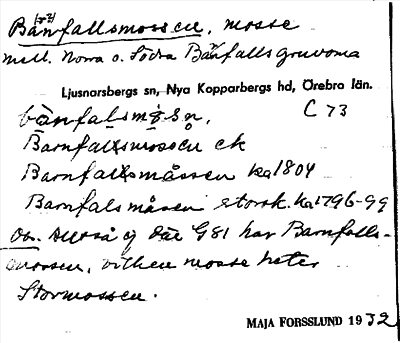 Bånfallsmossen, mosse
mell. Norra o. Södra Bånfallsgruvorna
Ljusnarsbergs sn, Nya Kopparbergs hd, Örebro län.
bànfalsmǫ̀sn, C 73
Barnfallsmossen ek
Barnfallsmåssen ka 1804
Barnfalsmåsen storsk. ka 1796-99
Obs. Alltså ej där G81 har Barnfalls-
mossen, vilken mosse heter
Stormossen.
MAJA FORSSLUND 1932